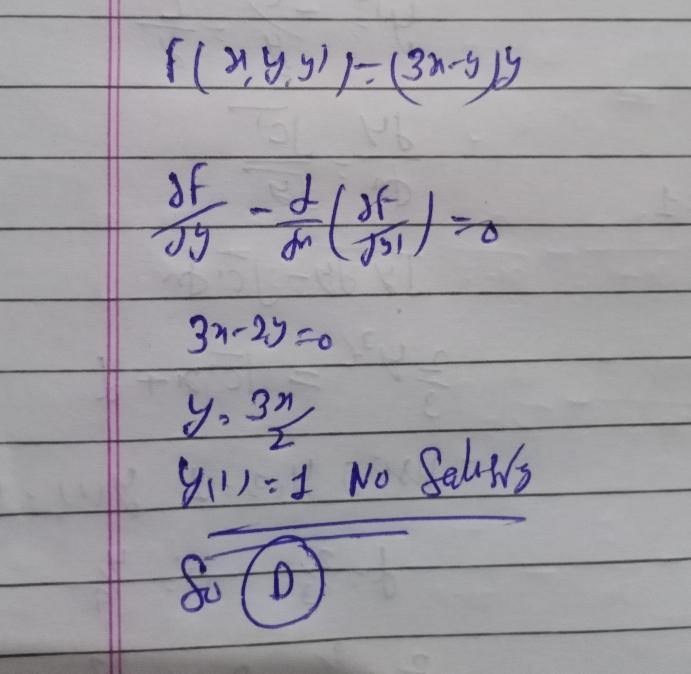 F(x, y, y') = (3x-y)y
∂F/∂y - d/dx (∂F/∂y') = 0
3x-2y=0
y = 3x/2
y(1) = 1 No Satisfy
So D